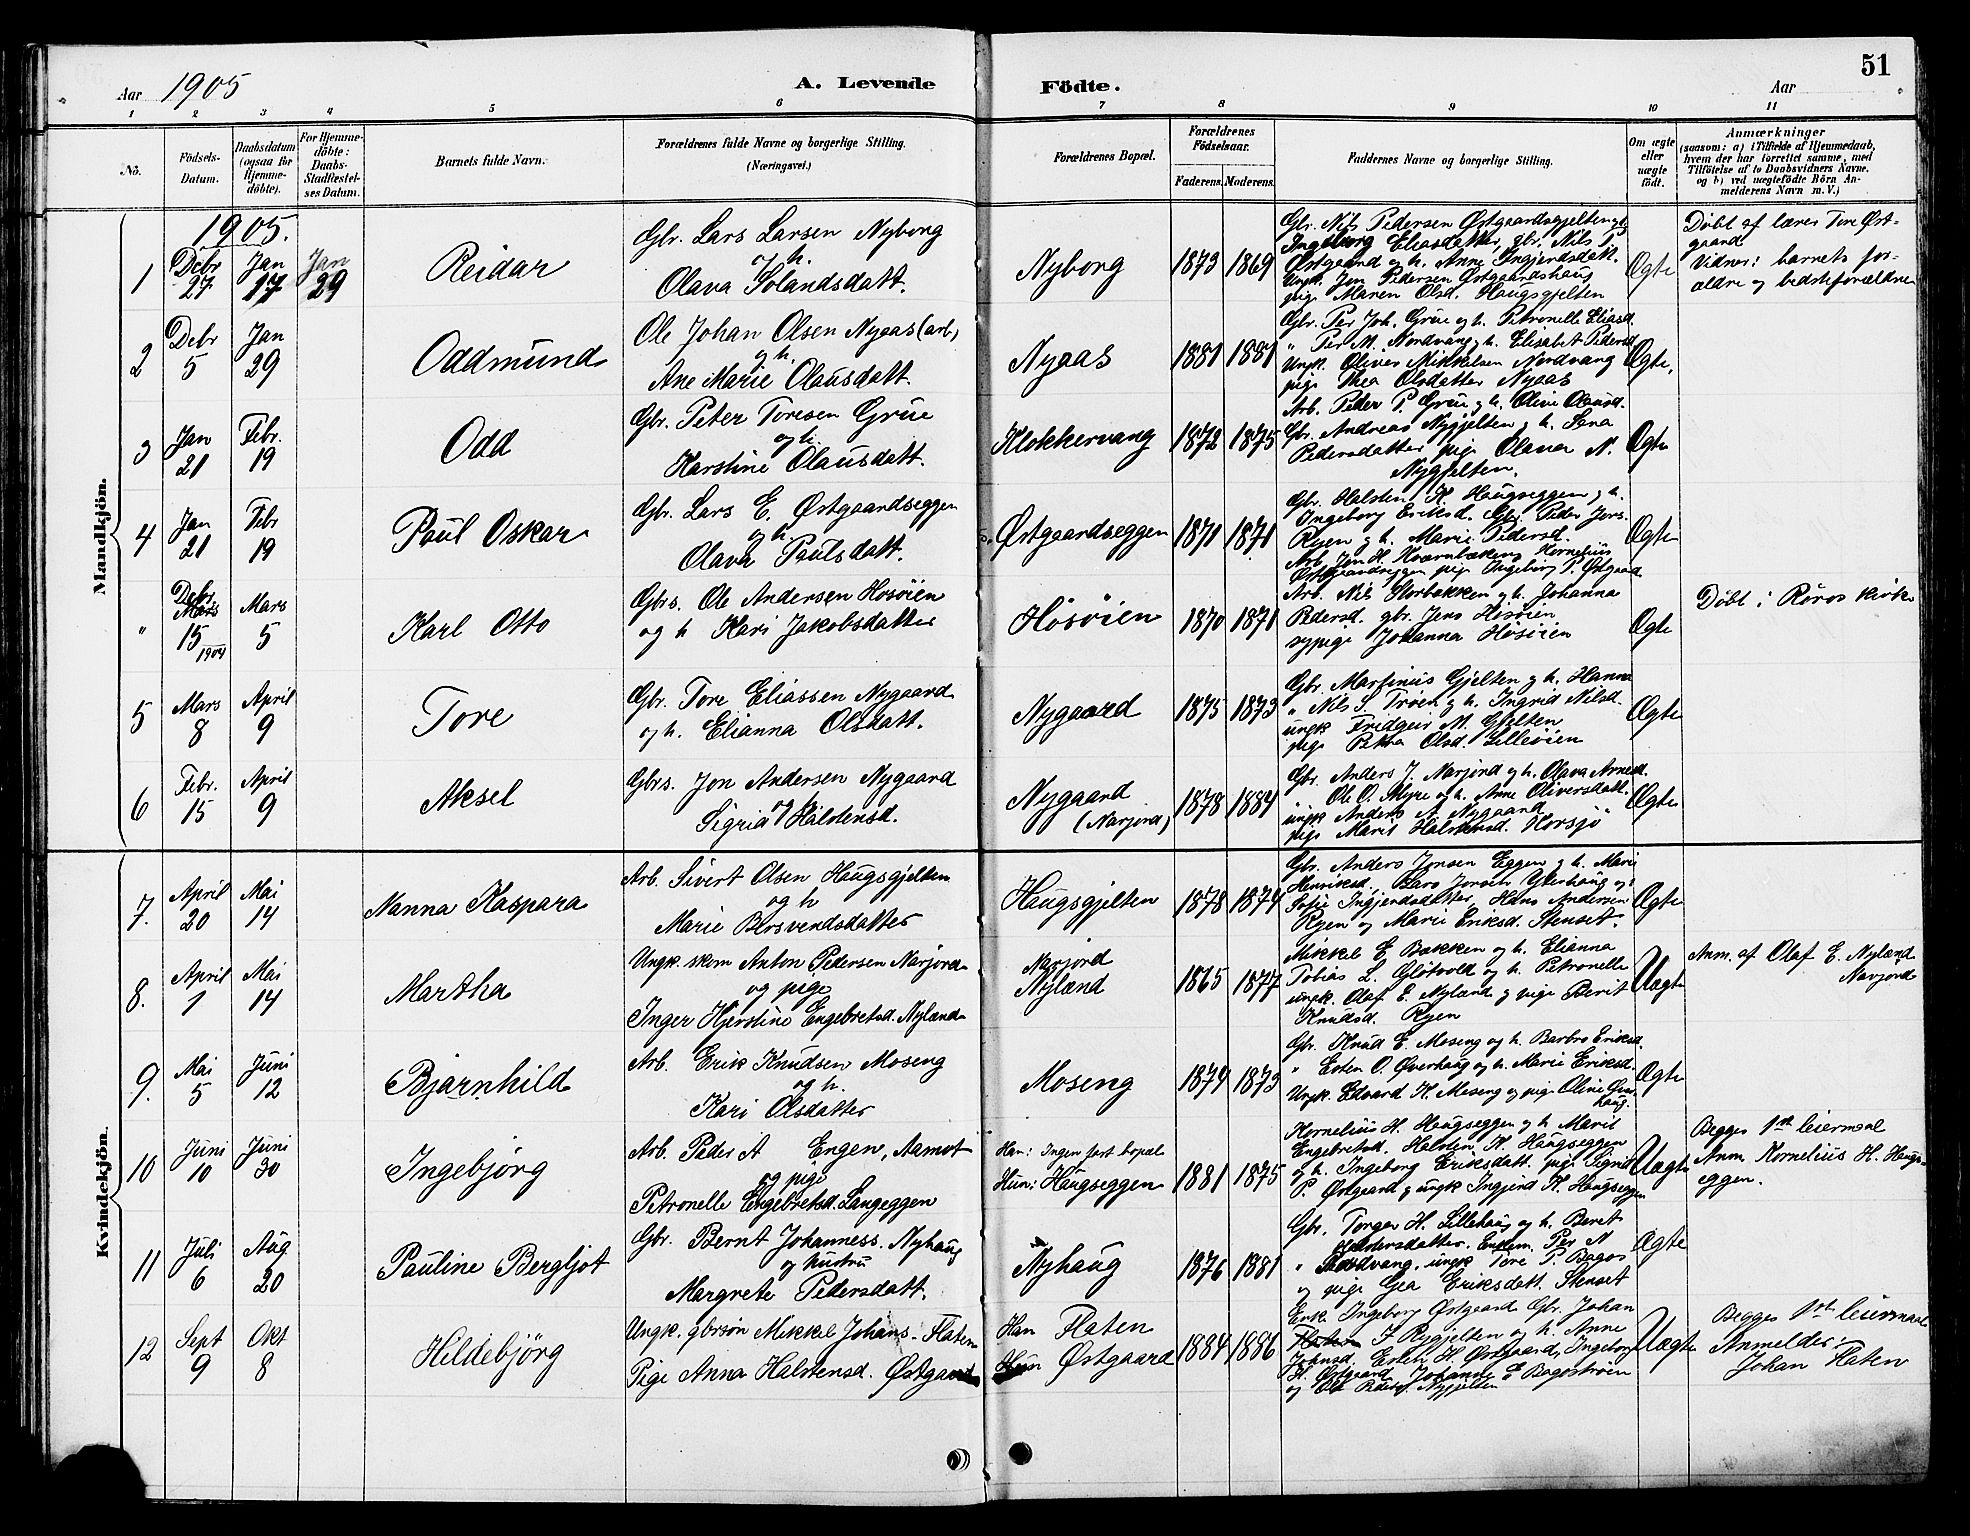 51
Aar 1905
A. Levende Födte.
Aar
1 2 3 4 5 6 7 8 9 10 11
No.
Födsels-Datum.
Daabsdatum (ogsaa for Hjemmedöbte).
For Hjemmedöbte: Daabs-Stadfæstelses Datum.
Barnets fulde Navn.
Forældrenes fulde Navne og borgerlige Stilling. (Næringsvei.)
Forældrenes Bopæl.
Forældrenes Födselsaar.
Faderens. Moderens.
Faddernes Navne og borgerlige Stilling.
Om ægte eller uægte födt.
Anmærkninger
(saasom: a) i Tilfælde af Hjemmedaab, hvem der har forrettet samme, med Tilföielse af to Daabsvidners Navne. og b) ved uægtefödte Börn Anmelderens Navn m. V.)
Mandkjön.
1905.
1 Debr 27 Jan 17 Jan 29 Reidar
Gbr. Lars Larsen Nyborg
og h.
Olava Tolandsdatt.
Nyborg 1873 1869
Gbr. Nils Pedersen Østgaardsgjelten og
Ingeborg Eliasdatter, gbr. Nils P.
Østgaard og h. Anne Ingjerdsdatt.
Ungk. Jon Pedersen Østgaardshaug
pige Maren Olsd. Haugsgjelten
Ægte
Døbt af lærer Tore Østgaard
Vidner: barnets forældre og bedsteforældre
2 Debr 5 Jan 29 Oddmund
Ole Johan Olsen Nyaas (arb)
og h.
Ane Marie Olausdatt.
Nyaas 1881 1881
Gbr. Per Joh. Grue og h. Petronelle Eliasd.
" Per M. Nordvang og h. Elisabet Pedersd
Ungk. Oliver Mikkelsen Nordvang
pige Thea Olsdatter Nyaas
Ægte.
3 Jan 21 Febr. 19 Odd
Gbr. Peter Toresen Grue
og h.
Karstine Olausdatt.
Klokkervang 1872 1875
Arb. Peder P. Grue og h. Olive Olausd.
Gbr. Andreas Nygjelten og h. Lana
Pedersdatter pige Olava N.
Nygjelten.
Ægte
4 Jan 21 Febr 19 Paul Oskar
Gbr. Lars E. Østgaardseggen
og h.
Olava Paulsdatt.
Østgaardseggen 1871 1871
Gbr. Halsten K. Haugseggen og h.
Ingeborg Eriksd. Gbr. Peder Jons.
Ryen og h. Marie Pedersd.
Arb. Jon H. Kværnbakken, Kornelius
Østgaardseggen pige Ingeborg P. Østgaard
Ægte
" Debr Mars 15 1904 Mars 5 Karl Otto
Gbrs. Ole Andersen Hosøien
og h Kari Jakobsdatter
Høsøien 1870 1871
Arb. Nils Storbakken og h. Johanna
Pedersd. gbr. Jens Høsøien
sypige Johanna Høsøien
Ægte
Døbt i Røros kirke
5 Mars 8 April 9 Tore
Gbr. Tore Eliassen Nygaard
og h. Elianna Olsdatt.
Nygaard 1875 1873
Gbr. Martinus Gjelten og h. Hanna
" Nils S. Trøen og h. Ingrid Nilsd.
ungk Fridgeir M. Gjelten
pige Petra Olsd. Lilleøien
Ægte
6 Febr. 15 April 9 Aksel
Gbrs. Jon Andersen Nygaard
og h
Sigrid Halstensd.
Nygaard
(Narjord) 1878 1884
Gbr. Anders J. Narjord og h. Olava Arnesd.
" Ole O. Myre og h. Anne Oliversdatt.
ungk Anders A. Nygaard
pige Marit Halstensd. Korsjö
Ægte
Kvindekjön.
7. April 20 Mai 14 Nanna Kaspara
Arb. Sivert Olsen Haugsgjelten
og h
Marie Bersvendsdatter
Haugsgjelten 1878 1874
Gbr. Anders Jonsen Eggen og h. Mari
Henriksd. Lars Jonsen Ytterhaug og
Sofie Ingjerdsdatter, Hans Andersen
Ryen og Marie Eriksd. Stenset.
Ægte
8. April 1 Mai 14 Martha
Ungk. skom Anton Pedersen Narjord
og pige
Inger Kjerstine Engebretsd. Nyland
Narjord
Nyland 1865 1877
Mikkel E Bakken og h. Elianna
Tobias L. Gløtvold og h. Petronelle
ungk. Olaf E. Nyland og pige Berit
Knudsd. Ryen
Uægte
Anm. af Olaf E. Nyland
Narjord
9. Mai 5 Juni 12 Bjarnhild
Arb. Erik Knudsen Moseng
og h.
Kari Olsdatter
Moseng 1874 1873
Gbr. Knud E. Moseng og h. Barbro Eriksd.
" Esten O. Øverhaug og h. Marie Eriksd.
Ungk. Edvard K. Moseng og pige Oline Øver
haug.
Ægte
10 Juni 10 Juni 30 Ingebjørg
Arb. Peder A Engen, Aamot
og pige
Petronelle Engebretsd. Langeggen
Han: Ingen fast bopæl
Hun: Haugseggen 1881 1875
Kornelius H. Haugseggen og h Marit
Engebretsd. Halsten K. Haugseggen
og h. Ingeborg Eriksdatt. pige Sigrid
P. Østgaard og ungk Ingjerd K. Haugseggen
Uægte
Begges 1st leiermaal
Anm. Kornelius H. Haugseggen.
11 Juli 6 Aug 20 Pauline Bergljot
Gbr. Bernt Johanness. Nyhaug
og hustru
Margrete Pedersdatt.
Nyhaug 1876 1881
Gbr. Torger H. Lillehaug og h. Beret
Pedersdatter. Enkem. Per N
" Nordvang, ungk Tore P. Bagos
og pige Gea Eriksdatt. Stenset
Ægte
12 Sept 9 Okt 8 Hildebjørg
Ungk. gbrsøn Mikkel Johans. Flaten
Pige Anna Halstensd. Østgaard
Han Flaten
Hun Østgaard 1884 1886
Enk. Ingeborg Østgaard Gbr. Johan
J. Rygjelten og h. Anne
Johnsd. Esten H. Østgaard, Ingeborg
H. Østgaard Johanne E Bagostrøen
og Ole Peders. Nygjelten
Uægte
Begges 1ste leiermaal
Anmelder:
Johan Flaten